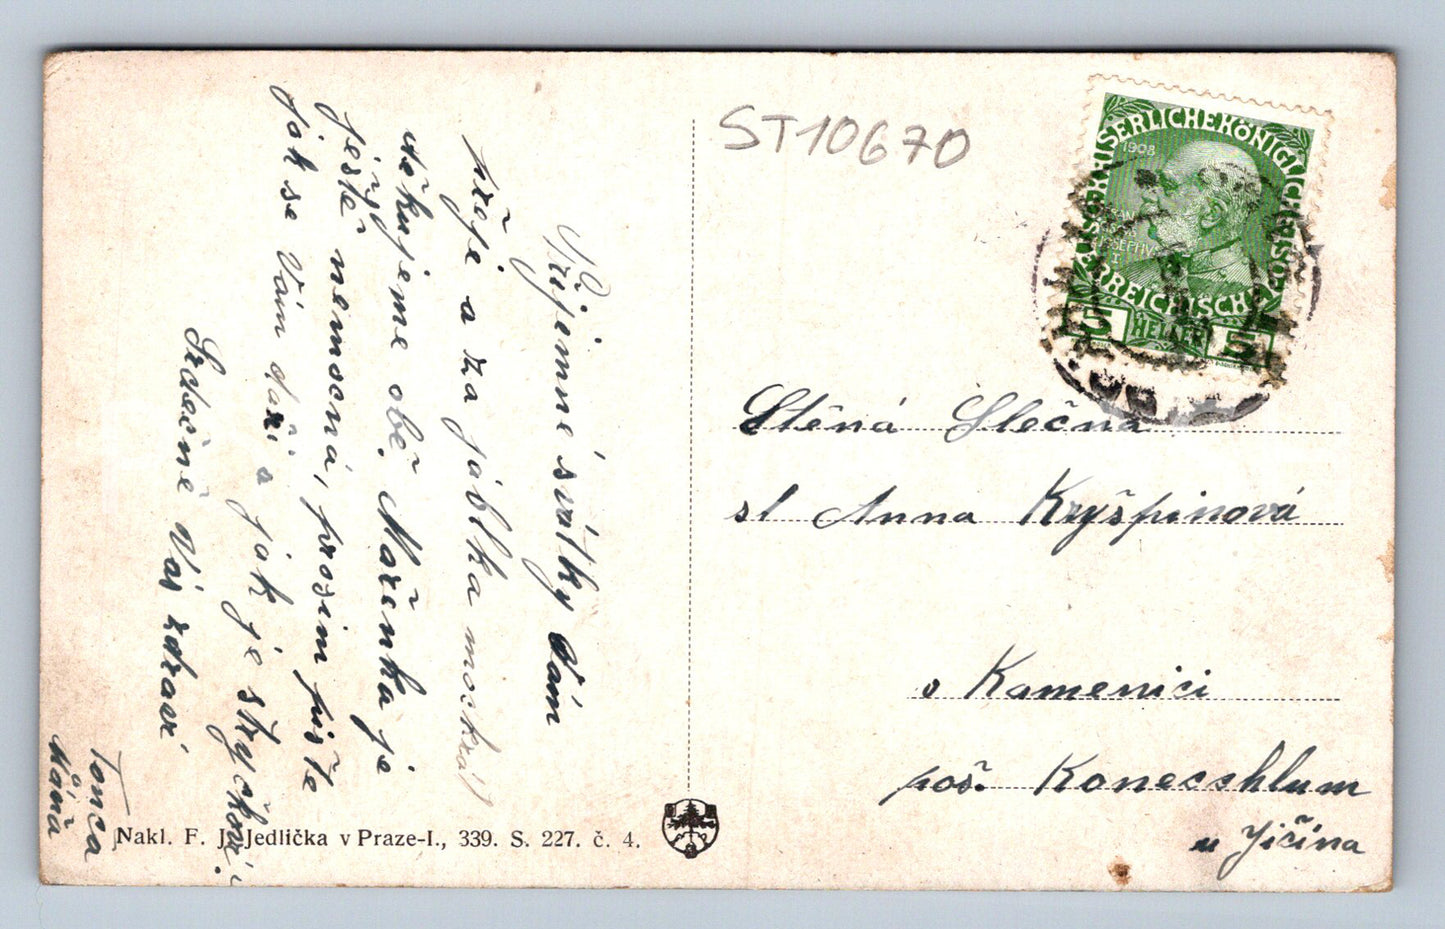 ST10670
KAISERLICHE KÖNIGLICHE ÖSTERREICHISCHE
1908
HELLER
5
Ctěná Slečna
sl Anna Kryšpinová
v Kamenici
poš. Konecchlum
u Jičína
Příjemné svátky Vám
přeje a za jablka mockrát
děkujeme obě. Mařenka je
ještě nemocná, prosím pište
jak se Vám daří a jak je strýčkovi.
Srdečně Vás zdraví
Tonca
Máňa
Nakl. F. J. Jedlička v Praze-I., 339. S. 227. č. 4.